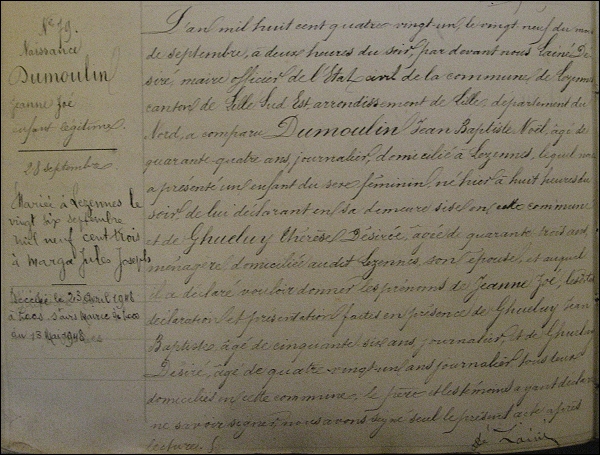 N° 79.
Naissance
Dumoulin
Jeanne Joé
enfant légitime.
28 septembre
Mariée à Lezennes le
vingt six septembre
mil neuf cent trois
à Marga Jules Joseph
Décédée le 23 avril 1948
à
au 13 Mai 1948
L'an mil huit cent quatre-vingt-un, le vingt neuf du mois
de septembre, à deux heures du soir, par devant nous Lainé Dé
siré, maire officier de l'État civil de la commune de Lezennes
canton de Lille Sud Est, arrondissement de Lille, département du
Nord, a comparu Dumoulin Jean Baptiste Noël, âgé de
quarante-quatre ans, journalier, domicilié à Lezennes, lequel nous
a présenté un enfant du sexe féminin, né hier à huit heures du
soir, de lui déclarant en sa demeure sise en cette commune
et de Ghueluy Thérèse Désirée, âgée de quarante trois ans,
ménagère domiciliée audit Lezennes, son épouse, et auquel
il a déclaré vouloir donner les prénoms de Jeanne Joé, lesdites
déclaration et présentation faites en présence de Ghueluy Jean
Baptiste, âgé de cinquante six ans, journalier, et de Ghueluy
Désiré, âgé de quatre-vingt un ans journalier, tous deux
domiciliés en cette commune; le père et les témoins ayant déclaré
ne savoir signer, nous avons signé seul le présent acte après
lecture.
Lainé